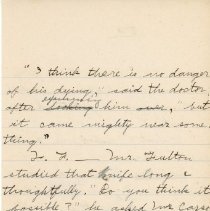 "I think there is no danger
of his dying," said the doctor
examining
after looking him over, "but
it came mighty near some
thing."
F. F — Mr. Fulton
studied that knife long &
thoughtfully. "Do you think it
possible?" he asked Mr Casso